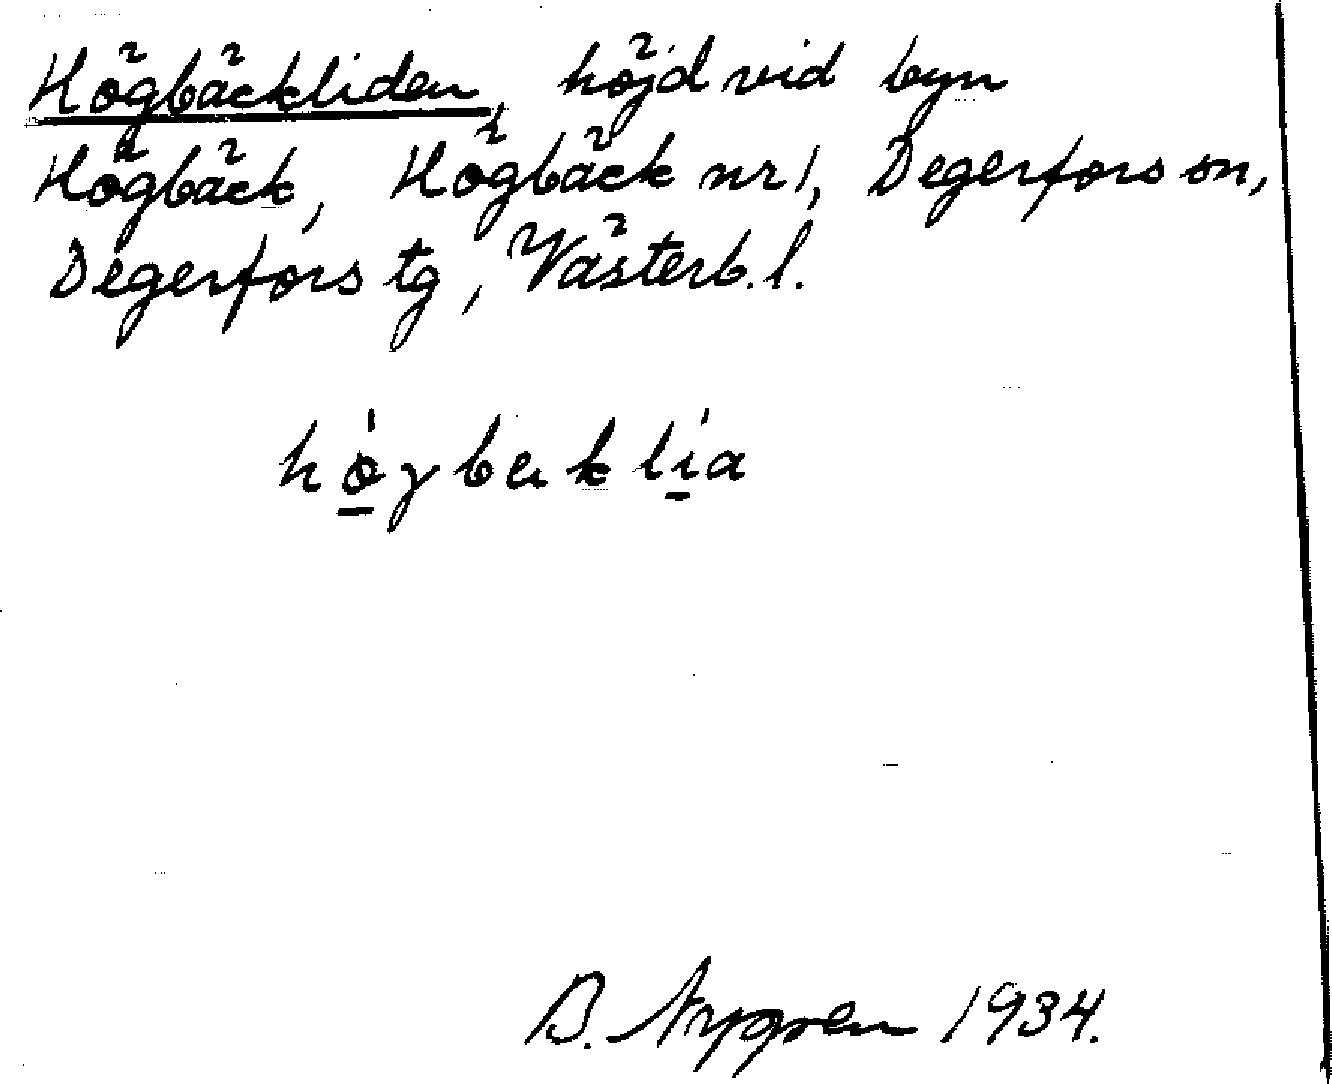 Högbäckliden, höjd vid byn
Högbäck, Högbäck nr 1, Degerfors sn,
Degerfors tg, Västerb. l.
høgbækli̱a
B. Nygren 1934.